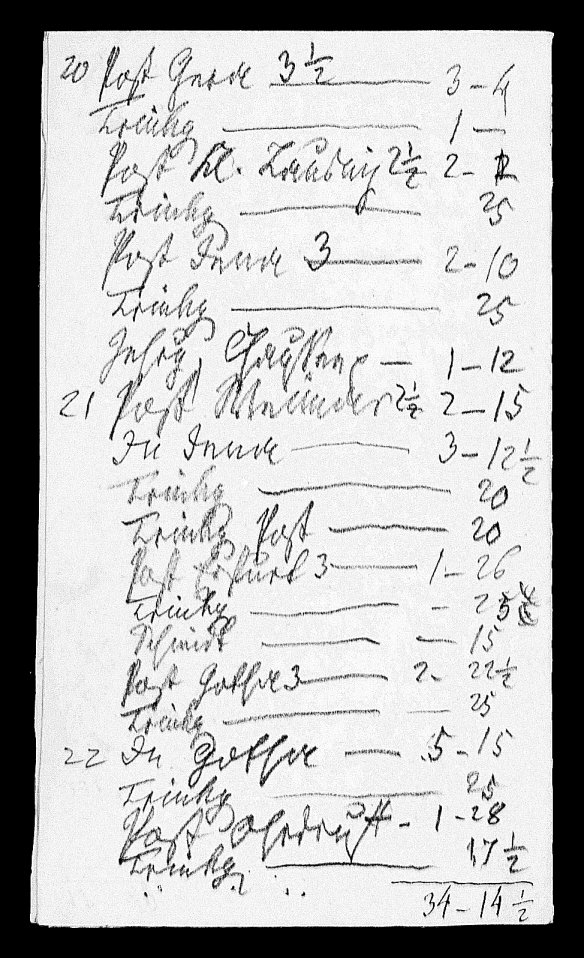 20 Post Gera 3½ — 3 – 4
Trinkg — 1 —
Post Kl. Lausnig 2½ 2 –
Trinkg — 25
Post Jena 3 — 2 – 10
Trinkg — 25
Chaussee — 1 – 12
21 Post 2½ 2 – 15
In Jena — 3 – 12½
Trinkg — 20
Trinkg Post — 20
Post Erfurt 3 — 1 – 26
Trinkg — – 25
Schmidt — — 15
Post Gotha 3 — 2 – 22½
Trinkg — — 25
22 In Gotha — 5 – 15
Trinkg — 25
Post Ohrdruff – 1 – 28
Trinkg — 17½
34 – 14½